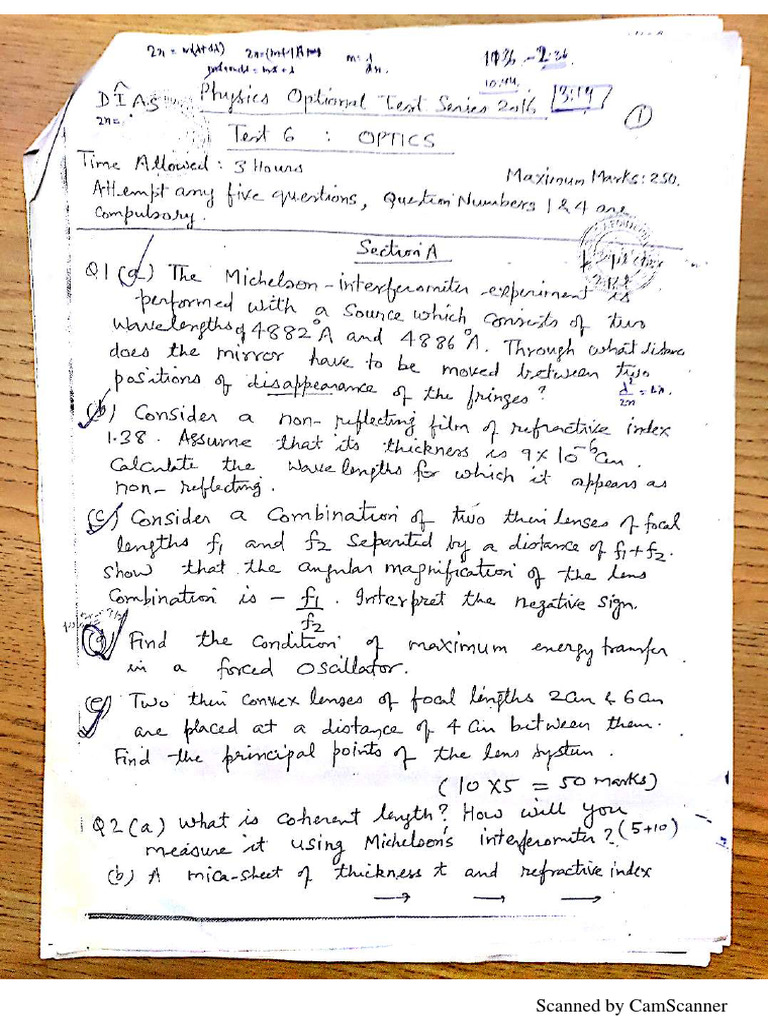 2x = n(λ+dλ)
1036 - 2:36
10:44
DIAS Physics Optional Test Series 2016 13:19
2x=
1
Test 6 : OPTICS
Time Allowed : 3 Hours Maximum Marks: 250.
Attempt any five questions, Question Numbers 1 & 4 are
compulsory.
Section A
Q1 (a) The Michelson-interferometer experiment is
performed with a source which consists of two
wavelengths of 4882 Å and 4886 Å. Through what distance
does the mirror have to be moved between two
positions of disappearance of the fringes?
(b) Consider a non-reflecting film of refractive index
1.38. Assume that its thickness is 9 x 10⁻⁶ cm.
Calculate the wavelengths for which it appears as
non-reflecting.
(c) Consider a combination of two thin lenses of focal
lengths f₁ and f₂ separated by a distance of f₁+f₂.
Show that the angular magnification of the lens
combination is - f₁/f₂. Interpret the negative sign.
(d) Find the condition of maximum energy transfer
in a forced oscillator.
(e) Two thin convex lenses of focal lengths 2cm & 6cm
are placed at a distance of 4 cm between them.
Find the principal points of the lens system.
(10 X5 = 50 marks)
Q2 (a) What is coherent length? How will you
measure it using Michelson's interferometer? (5+10)
(b) A mica-sheet of thickness t and refractive index
→ → →
Scanned by CamScanner